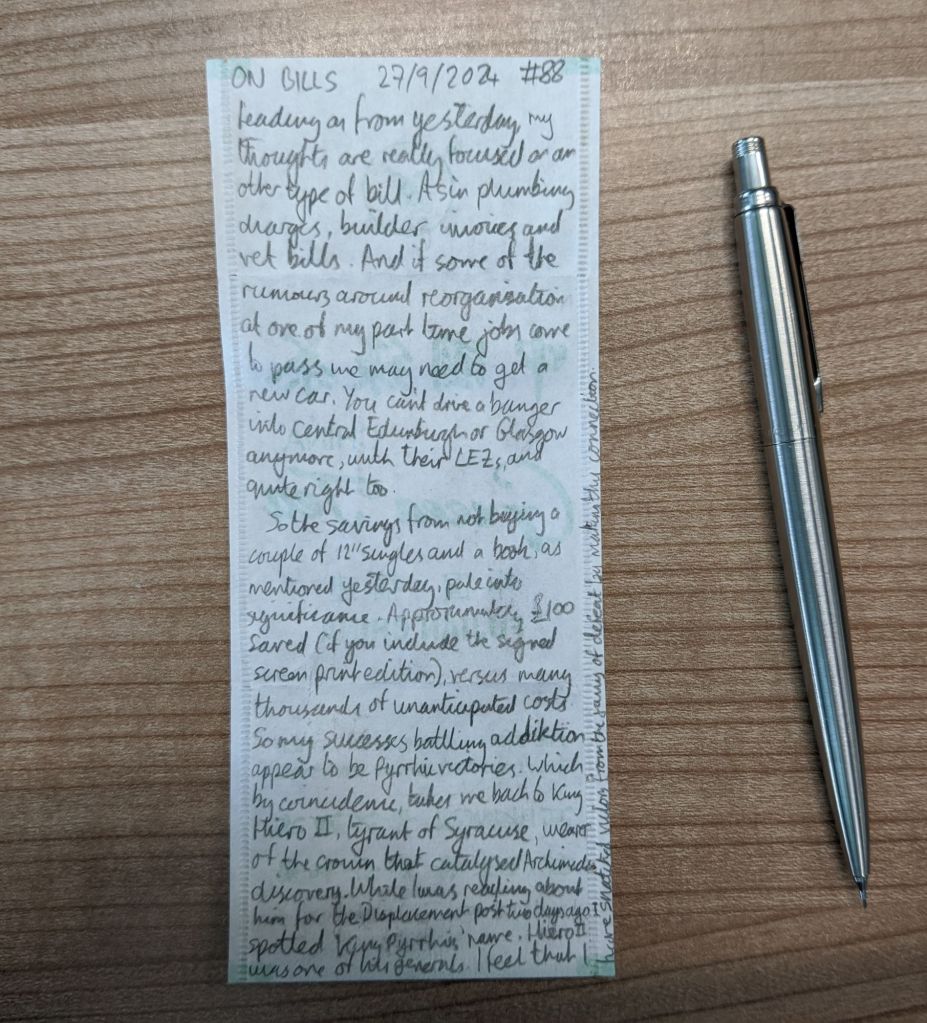 ON BILLS 27/9/2024 #88
Leading on from yesterday, my
thoughts are really focused on an
other type of bill. As in plumbing
charges, builder invoices and
vet bills. And if some of the
rumours around reorganisation
at one of my part time jobs come
to pass we may need to get a
new car. You can't drive a banger
into Central Edinburgh or Glasgow
anymore, with their LEZs, and
quite right too.
So the savings from not buying a
couple of 12" singles and a book, as
mentioned yesterday, pale into
significance. Approximately £100
saved (if you include the signed
screen print edition), versus many
thousands of unanticipated costs.
So my successes battling addiktion
appear to be Pyrrhic victories. Which
by coincidence, takes me back to King
Hiero II, tyrant of Syracuse, wearer
of the crown that catalysed Archimedes
discovery. While I was reading about
him for the Displacement post two days ago I
spotted King Pyrrhus' name. Hiero II
was one of his generals. I feel that I
have snatched victory from the jaws of defeat by making this connection.